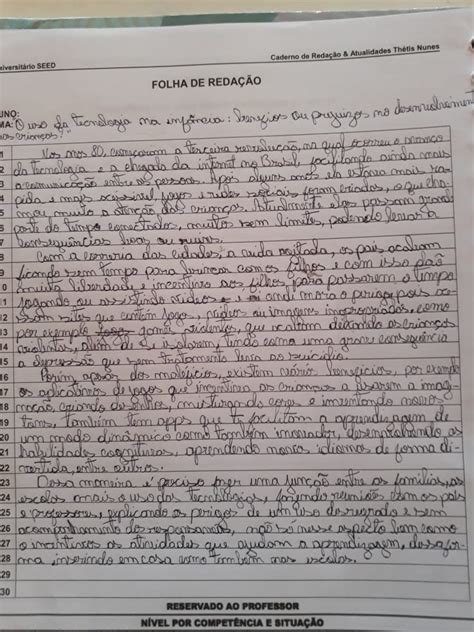 universitário SEED
Caderno de Redação & Atualidades Thétis Nunes
FOLHA DE REDAÇÃO
UNO:
MA: O uso da tecnologia na infância: benefícios ou prejuízos no desenvolvimento
das crianças?
1 Nos anos 80, começaram a terceira revolução, na qual ocorreu o avanço
2 da tecnologia e a chegada da internet no Brasil, facilitando ainda mais
3 a comunicação entre as pessoas. Após alguns anos ela estava mais rá-
4 pida e mais acessível, jogos e redes sociais foram criados, o que cha-
5 mou muito a atenção das crianças. Atualmente elas passam grande
6 parte do tempo conectados, muitos sem limites, podendo levar a
7 consequências boas ou ruins.
8 Com a correria das cidades, a vida agitada, os pais acabam
9 ficando sem tempo para brincar com os filhos e com isso dão
10 muita liberdade e incentivo aos filhos para passarem o tempo
11 jogando ou assistindo vídeos e é aí mora o perigo, pois
12 sites que contém jogos, vídeos ou imagens inapropriadas, como
13 por exemplo games violentos, que acabam deixando as crianças
14 violentas, além de se isolarem, tendo como uma grave consequência
15 a depressão que sem tratamento leva ao suicídio.
16 Porém apesar dos malefícios, existem vários benefícios, por exemplo
17 os aplicativos de jogos que incentiva as crianças a usarem a imagi-
18 nação criando desenhos, misturando cores e inventando novos
19 também tem apps que facilitam a aprendizagem de
20 um modo dinâmico como também inovador, desenvolvendo as
21 habilidades cognitivas, aprendendo novos idiomas de forma di-
22 vertida, entre outros.
23 Dessa maneira é preciso haver uma junção entre as famílias, as
24 escolas mais o uso das tecnologias, fazendo reuniões com os pais
25 e professores, explicando os perigos de um uso desregrado e sem
26 acompanhamento dos responsáveis, não só nesse aspecto bem como
27 o incentivo as atividades que ajudam a aprendizagem, dessa for-
28 ma, inserindo em casa como também nas escolas.
29
30
RESERVADO AO PROFESSOR
NÍVEL POR COMPETÊNCIA E SITUAÇÃO